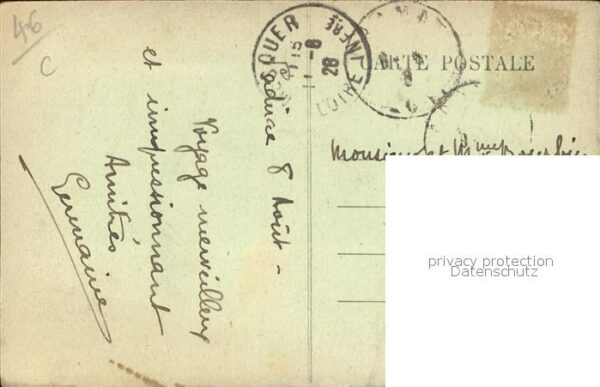 46
C
CARTE POSTALE
OUER
8
28
LOIRE INFRE
8 Août -
Voyage merveilleux
et impressionnant
Amitiés
Germaine
Monsieur et Mme
privacy protection
Datenschutz